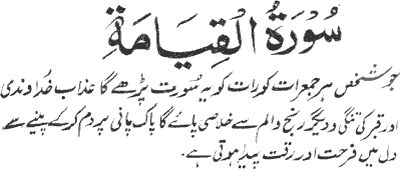 سُوْرَةُ الْقِيَامَةِ
جو شخص ہر جمعرات کو رات کو یہ سُورت پڑھے گا عذاب خُداوندی
اور قبر کی تنگی و دیگر رنج و الم سے خلاصی پائے گا پاک پانی پر دم کر کے پینے سے
دل میں فرحت اور رقت پیدا ہوتی ہے۔